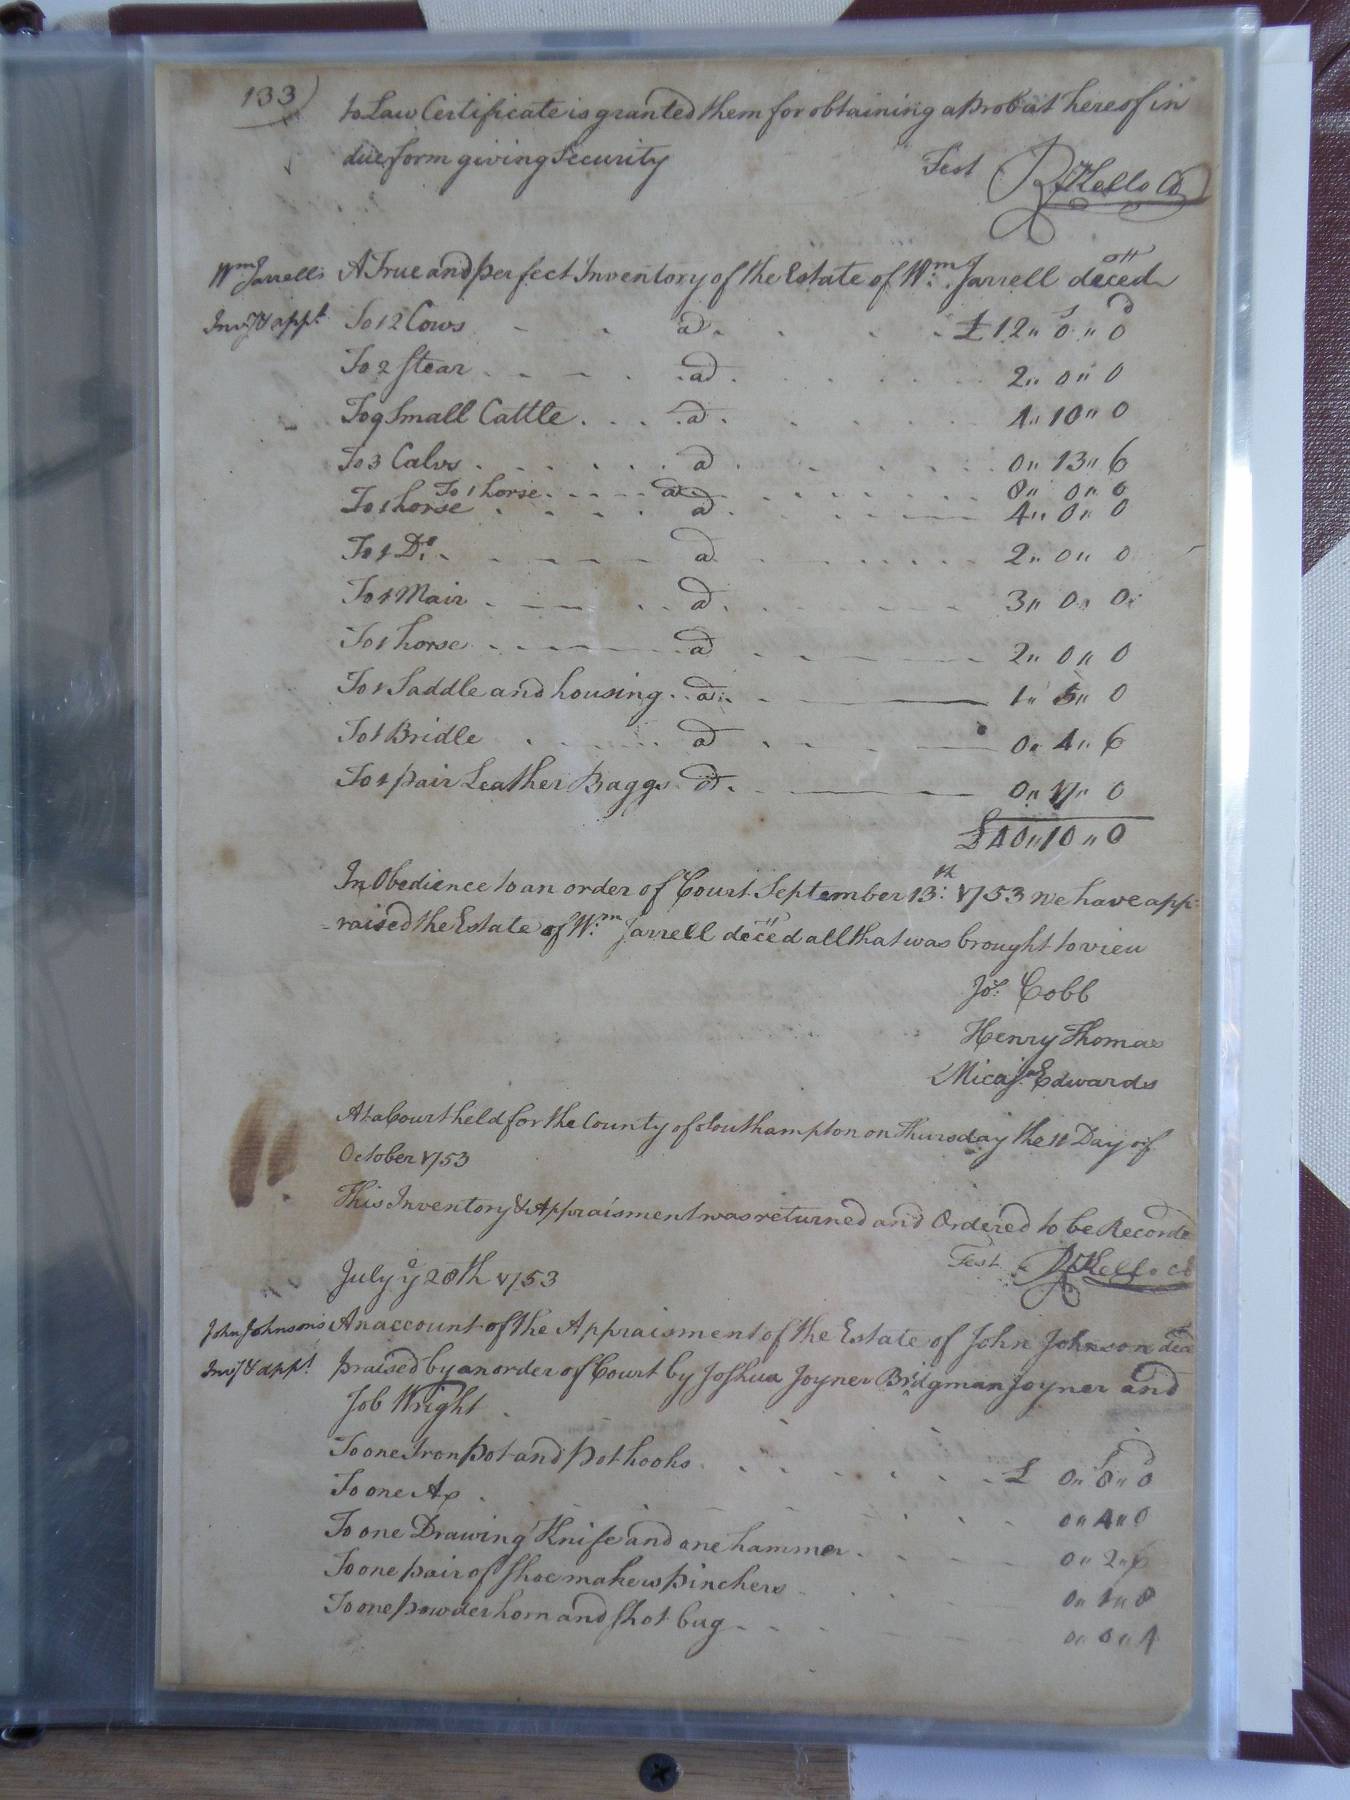 133)
to Law Certificate is granted them for obtaining a Probat hereof in
due form giving Security Test R Kello Cl
Wm Jarrell's A True and perfect Inventory of the Estate of Wm. Jarrell deced
Invy & appt To 12 Cows - - a - - £12 " 0 " 0
To 2 Stear - - - a - - 2 " 0 " 0
To 9 Small Cattle - - a - - 4 " 10 " 0
To 3 Calvs - - a - - 0 " 13 " 6
To 1 horse - - a - - 8 " 0 " 0
To 1 horse - - a - - 4 " 0 " 0
To 1 Do. - - a - - 2 " 0 " 0
To 1 Mair - - a - - 3 " 0 " 0
To 1 horse - - a - - 2 " 0 " 0
To 1 Saddle and housing - a - - 1 " 5 " 0
To 1 Bridle - - a - - 0 " 4 " 6
To 1 pair Leather Baggs a - - 0 " 17 " 0
£40 " 10 " 0
In Obedience to an order of Court September 13th: 1753 we have app-
-raised the Estate of Wm. Jarrell deced all that was brought to vieu
Jos. Cobb
Henry Thomas
Micajah Edwards
At a Court held for the County of Southampton on Thursday the 11 Day of
October 1753
This Inventory & Appraisment was returned and Ordered to be Recorde
Test R Kello Cl
July ye 28th 1753
John Johnson's An account of the Appraisment of the Estate of John Johnson decd
Invy & appt praised by an order of Court by Joshua Joyner Bridgman Joyner and
Job Wright
To one Iron pot and pot hooks - - £ 0 " 8 " 0
To one Ax - - 0 " 4 " 0
To one Drawing Knife and one hammer - - 0 " 2 " 6
To one pair of Shoe makers pinchers - - 0 " 1 " 8
To one powder horn and Shot bag - - 0 " 0 " 4